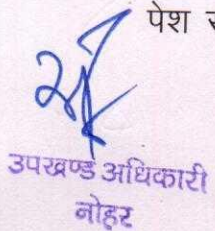 पेश
उपखण्ड अधिकारी
नोहर